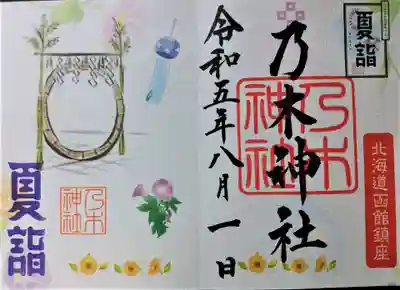 夏詣
北海道函館鎮座
乃木神社
乃木
神社
令和五年八月一日
夏詣
乃木
神社